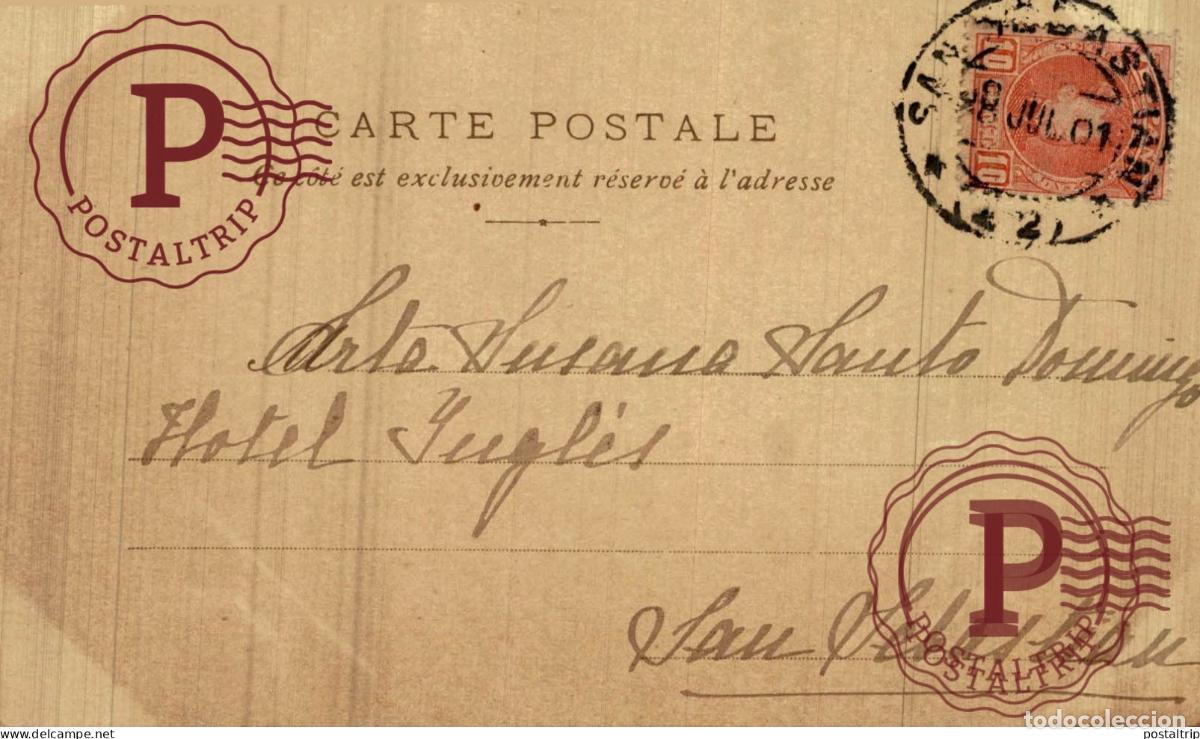 CARTE POSTALE
Ce côté est exclusivement réservé à l'adresse
SAN SEBASTIAN
28 JUL 01
10
10
Srta. Susana Santo Domingo
Hotel Inglés
San Sebastian
P
POSTALTRIP
P
POSTALTRIP
POSTALTRIP
todocoleccion
www.delcampe.net
postaltrip